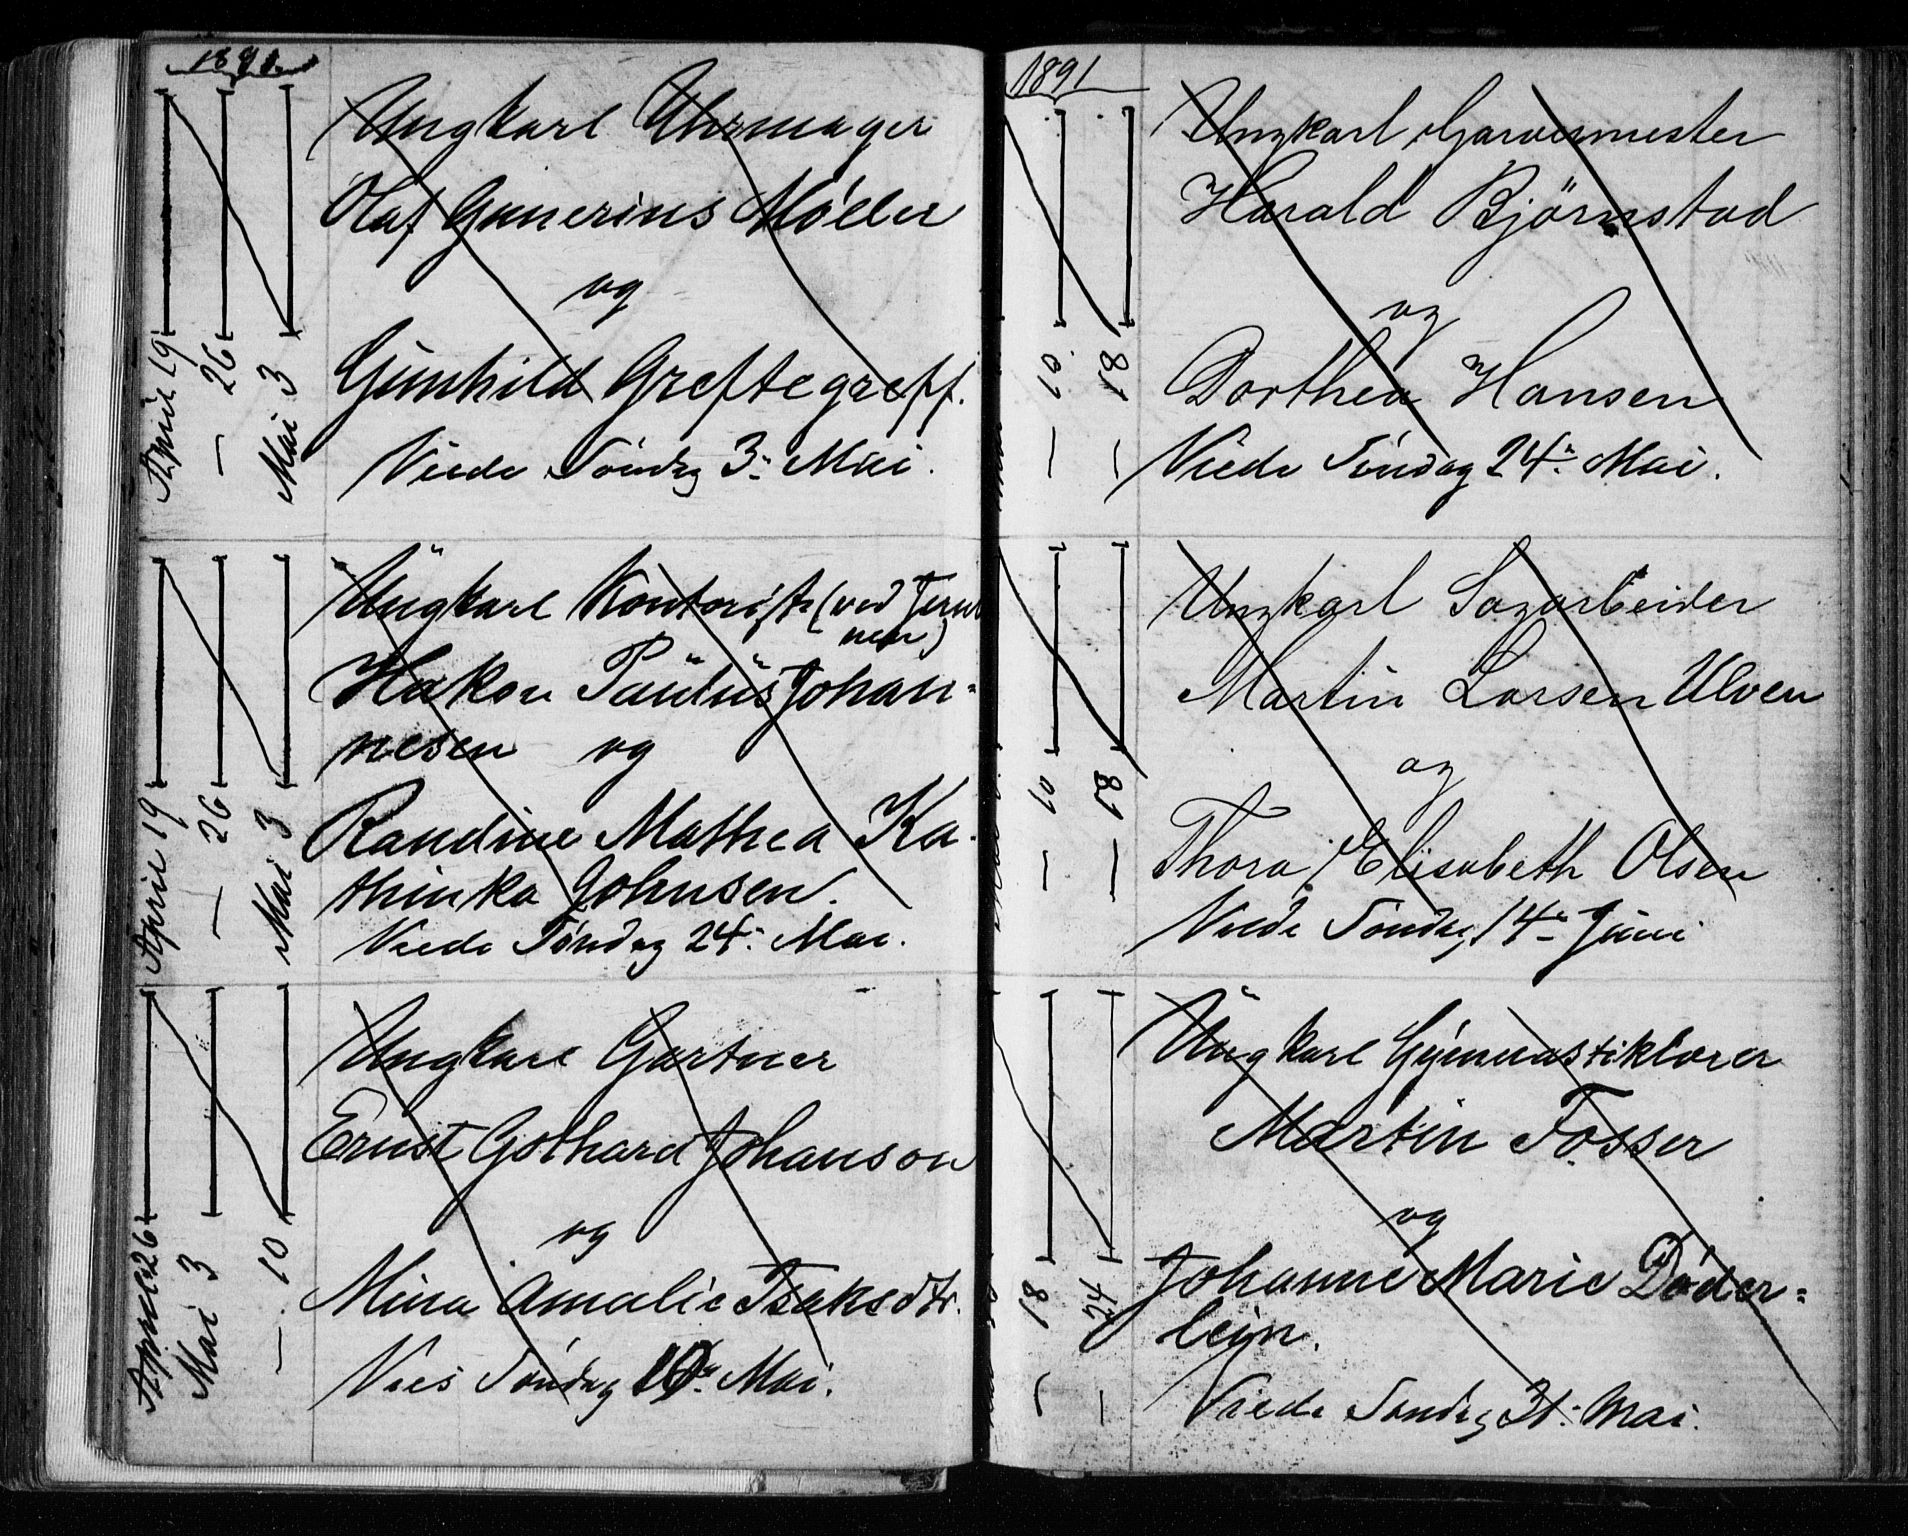 1891.
April 19
— 26
Mai 3
Ungkarl Uhrmager
Olaf Gunerius Møller
og
Gunhild Greftegreff.
Viede Søndag 3. Mai.
April 19
— 26
Mai 3
Ungkarl Kontorist (ved
nen)
Hakon Paulus Johan-
nesen og
Randine Mathea Ka-
thinka Johnsen.
Viede Søndag 24. Mai.
April 26
Mai 3
— 10
Ungkarl Gartner
Ernst Gothard Johanson
og
Mina Amalie Isaksdtr.
Vies Søndag 10. Mai.
1891
— 10
— 18
Ungkarl Garvermester
Harald Bjørnstad
og
Dorthea Hansen
Viede Søndag 24. Mai.
— 10
— 18
Ungkarl Sagarbeider
Martin Larsen Ulven
og
Thora Elisabeth Olsen
Viede Søndag 14. Juni
— 18
— 24
Ungkarl Gymnastiklærer
Martin Fosser
og
Johanne Marie Døder-
lein.
Viede Søndag 31. Mai.